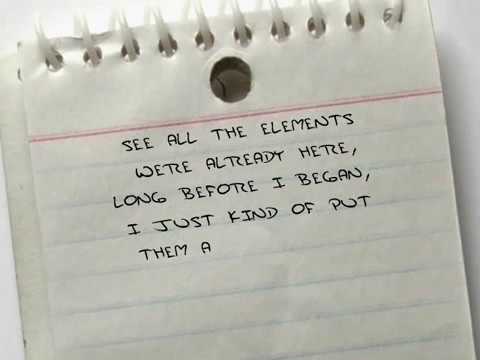 SEE ALL THE ELEMENTS
WERE ALREADY HERE,
LONG BEFORE I BEGAN,
I JUST KIND OF PUT
THEM A